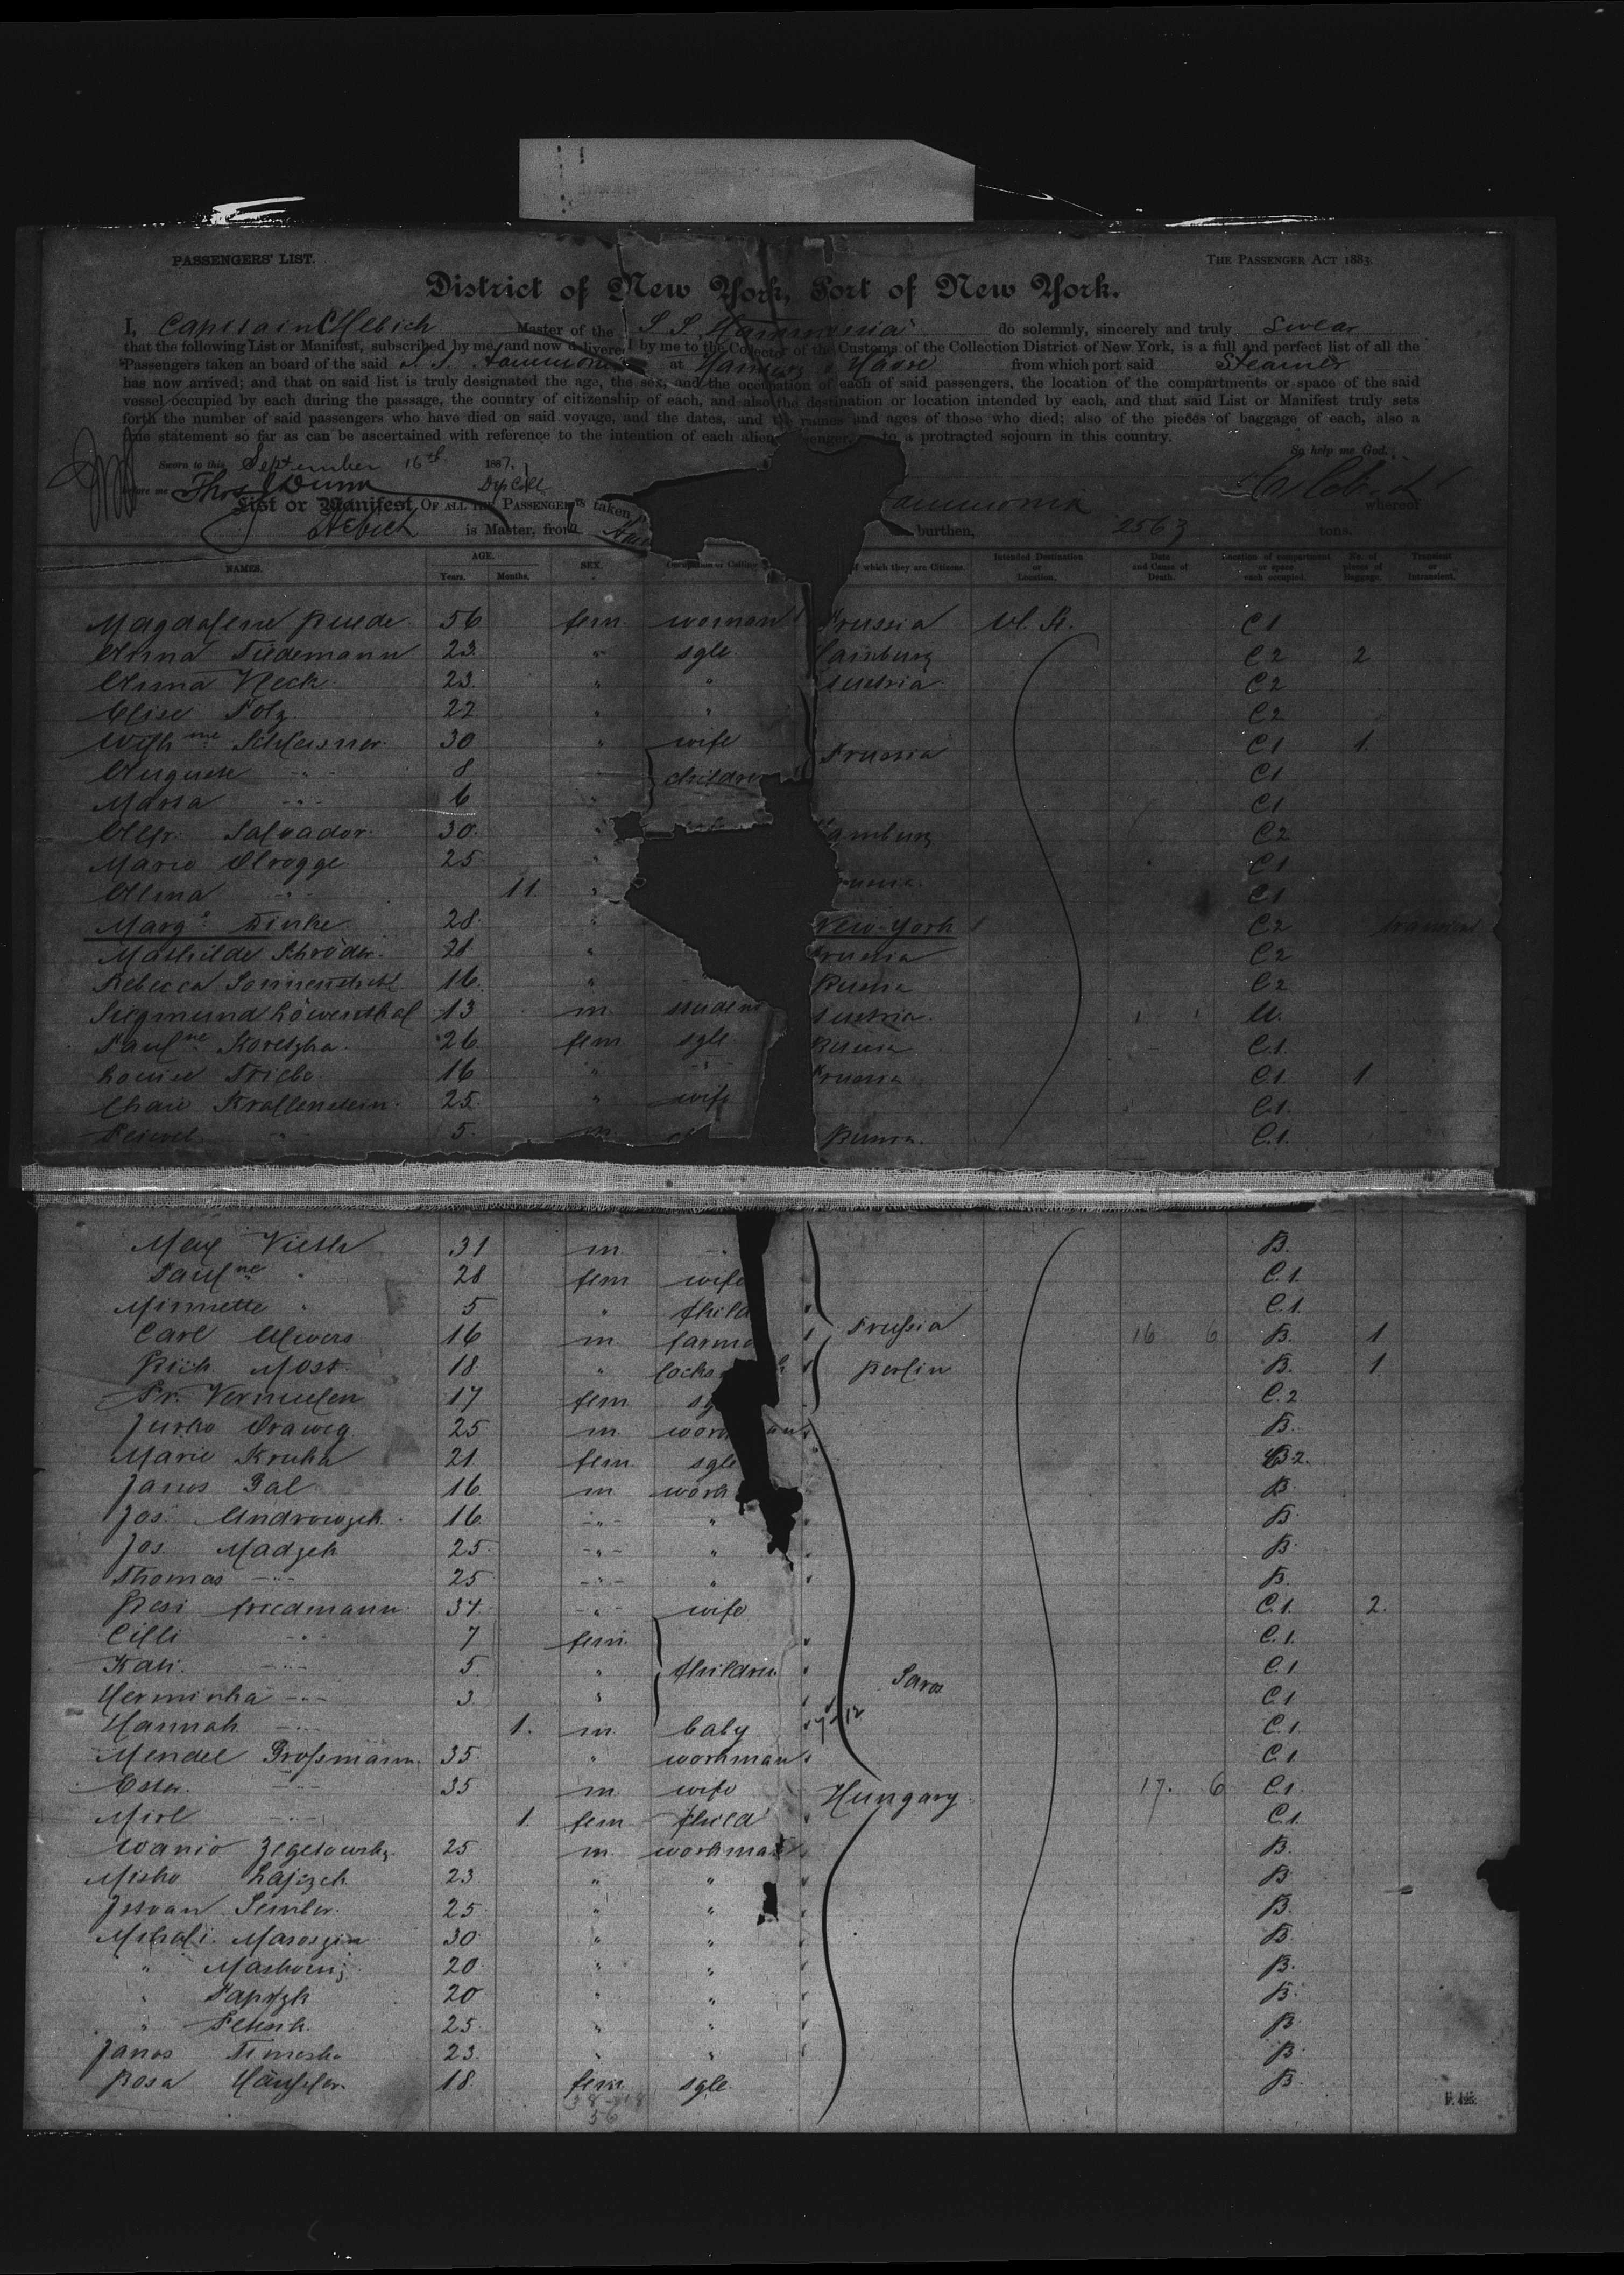 PASSENGERS' LIST.
THE PASSENGER ACT 1883.
District of New York, Port of New York.
I, Capitain C Hebich Master of the S S Hammonia do solemnly, sincerely and truly Swear
that the following List or Manifest, subscribed by me, and now delivered by me to the Collector of the Customs of the Collection District of New York, is a full and perfect list of all the
Passengers taken on board of the said S. S. Hammonia at Hamburg & Havre from which port said Steamer
has now arrived; and that on said list is truly designated the age, the sex, and the occupation of each of said passengers, the location of the compartments or space of the said
vessel occupied by each during the passage, the country of citizenship of each, and also the destination or location intended by each, and that said List or Manifest truly sets
forth the number of said passengers who have died on said voyage, and the dates, and the names and ages of those who died; also of the pieces of baggage of each, also a
true statement so far as can be ascertained with reference to the intention of each alien to a protracted sojourn in this country.
So help me God.
Sworn to this September 16th 1887,
before me Thos J Dunn Dep Coll C Hebich
List or Manifest OF ALL THE PASSENGERS taken ammonia whereof
Hebich is Master, from burthen, 2563 tons.
NAMES. AGE. Years. Months. SEX. Occupation or Calling of which they are Citizens. Intended Destination or Location. Date and Cause of Death. Location of compartment or space each occupied. No. of pieces of Baggage. Transient or Intransient.
Magdalene Ruede 56 fem. woman Prussia U. St. C1
Anna Tiedemann 23. " sgle. Hamburg C2 2
Anna Heck 23. " " Austria C2
Elise Folz 22 " " C2
Wilhme Schleisner 30 " wife Prussia C1 1.
Auguste -"- 8 children C1
Marta -"- 6 " C1
Alfr. Salvador. 30. " amburg C2
Marie Olrogge 25 " C1
Alma -"- 11. " C1
Marge Finke 28. " New-York C2 transient
Mathilde Schröder. 21 " russia C2
Rebecca 16. " Russia C2
Siegmund Löwenthal 13 m. student Austria. U.
Paulne Koretzka. 26. fem sgle Russia C.1.
Louise Triebe. 16 " -"- Prussia C.1. 1
Chaie Krallenstein. 25. " wife C.1.
Feiwel -"- 5. m. Russia. C.1.
Max Vieth 31 m. -"- B.
Paulne " 28 fem wife C.1.
Minnette " 5 " child C.1.
Carl Alwers 16 m. farme Prussia 16 6 B. 1
Rich Most. 18. " locks h Berlin B. 1.
Fr. Vermuelen 17 fem sg C.2
Jurko Oraweg 25 m work an B.
Marie Kruka 21 fem sgle 2.
Janos Gal 16 m work B.
Jos. Androwzek. 16 -"- " B.
Jos. Madzek 25. -"- " B.
Thomas -"- 25 -"- " B.
Resi Friedmann. 34. -"- wife C.1. 2.
Cilli -"- 7 fem. C.1.
Kati. -"- 5. " children Saros C.1
Herminka -"- 3 " C.1
Hannah -"- 1. m. baby C.1.
Mendel Grossmann. 35. " workman C.1
Ester. -"- 35 m. wife Hungary. 17. 6 C.1.
Mirl -"- 1. fem child C.1.
Wanio 25. m workman B.
Misko Lajczek 23. " " B.
Istvan Semler. 25. " " B.
Mihali. 30. " " B.
" 20. " " B.
" 20 " " B.
" 25. " " B.
Janos Timosko 23. " " B.
Rosa 18. fem. sgle. B.
56
F. 495.